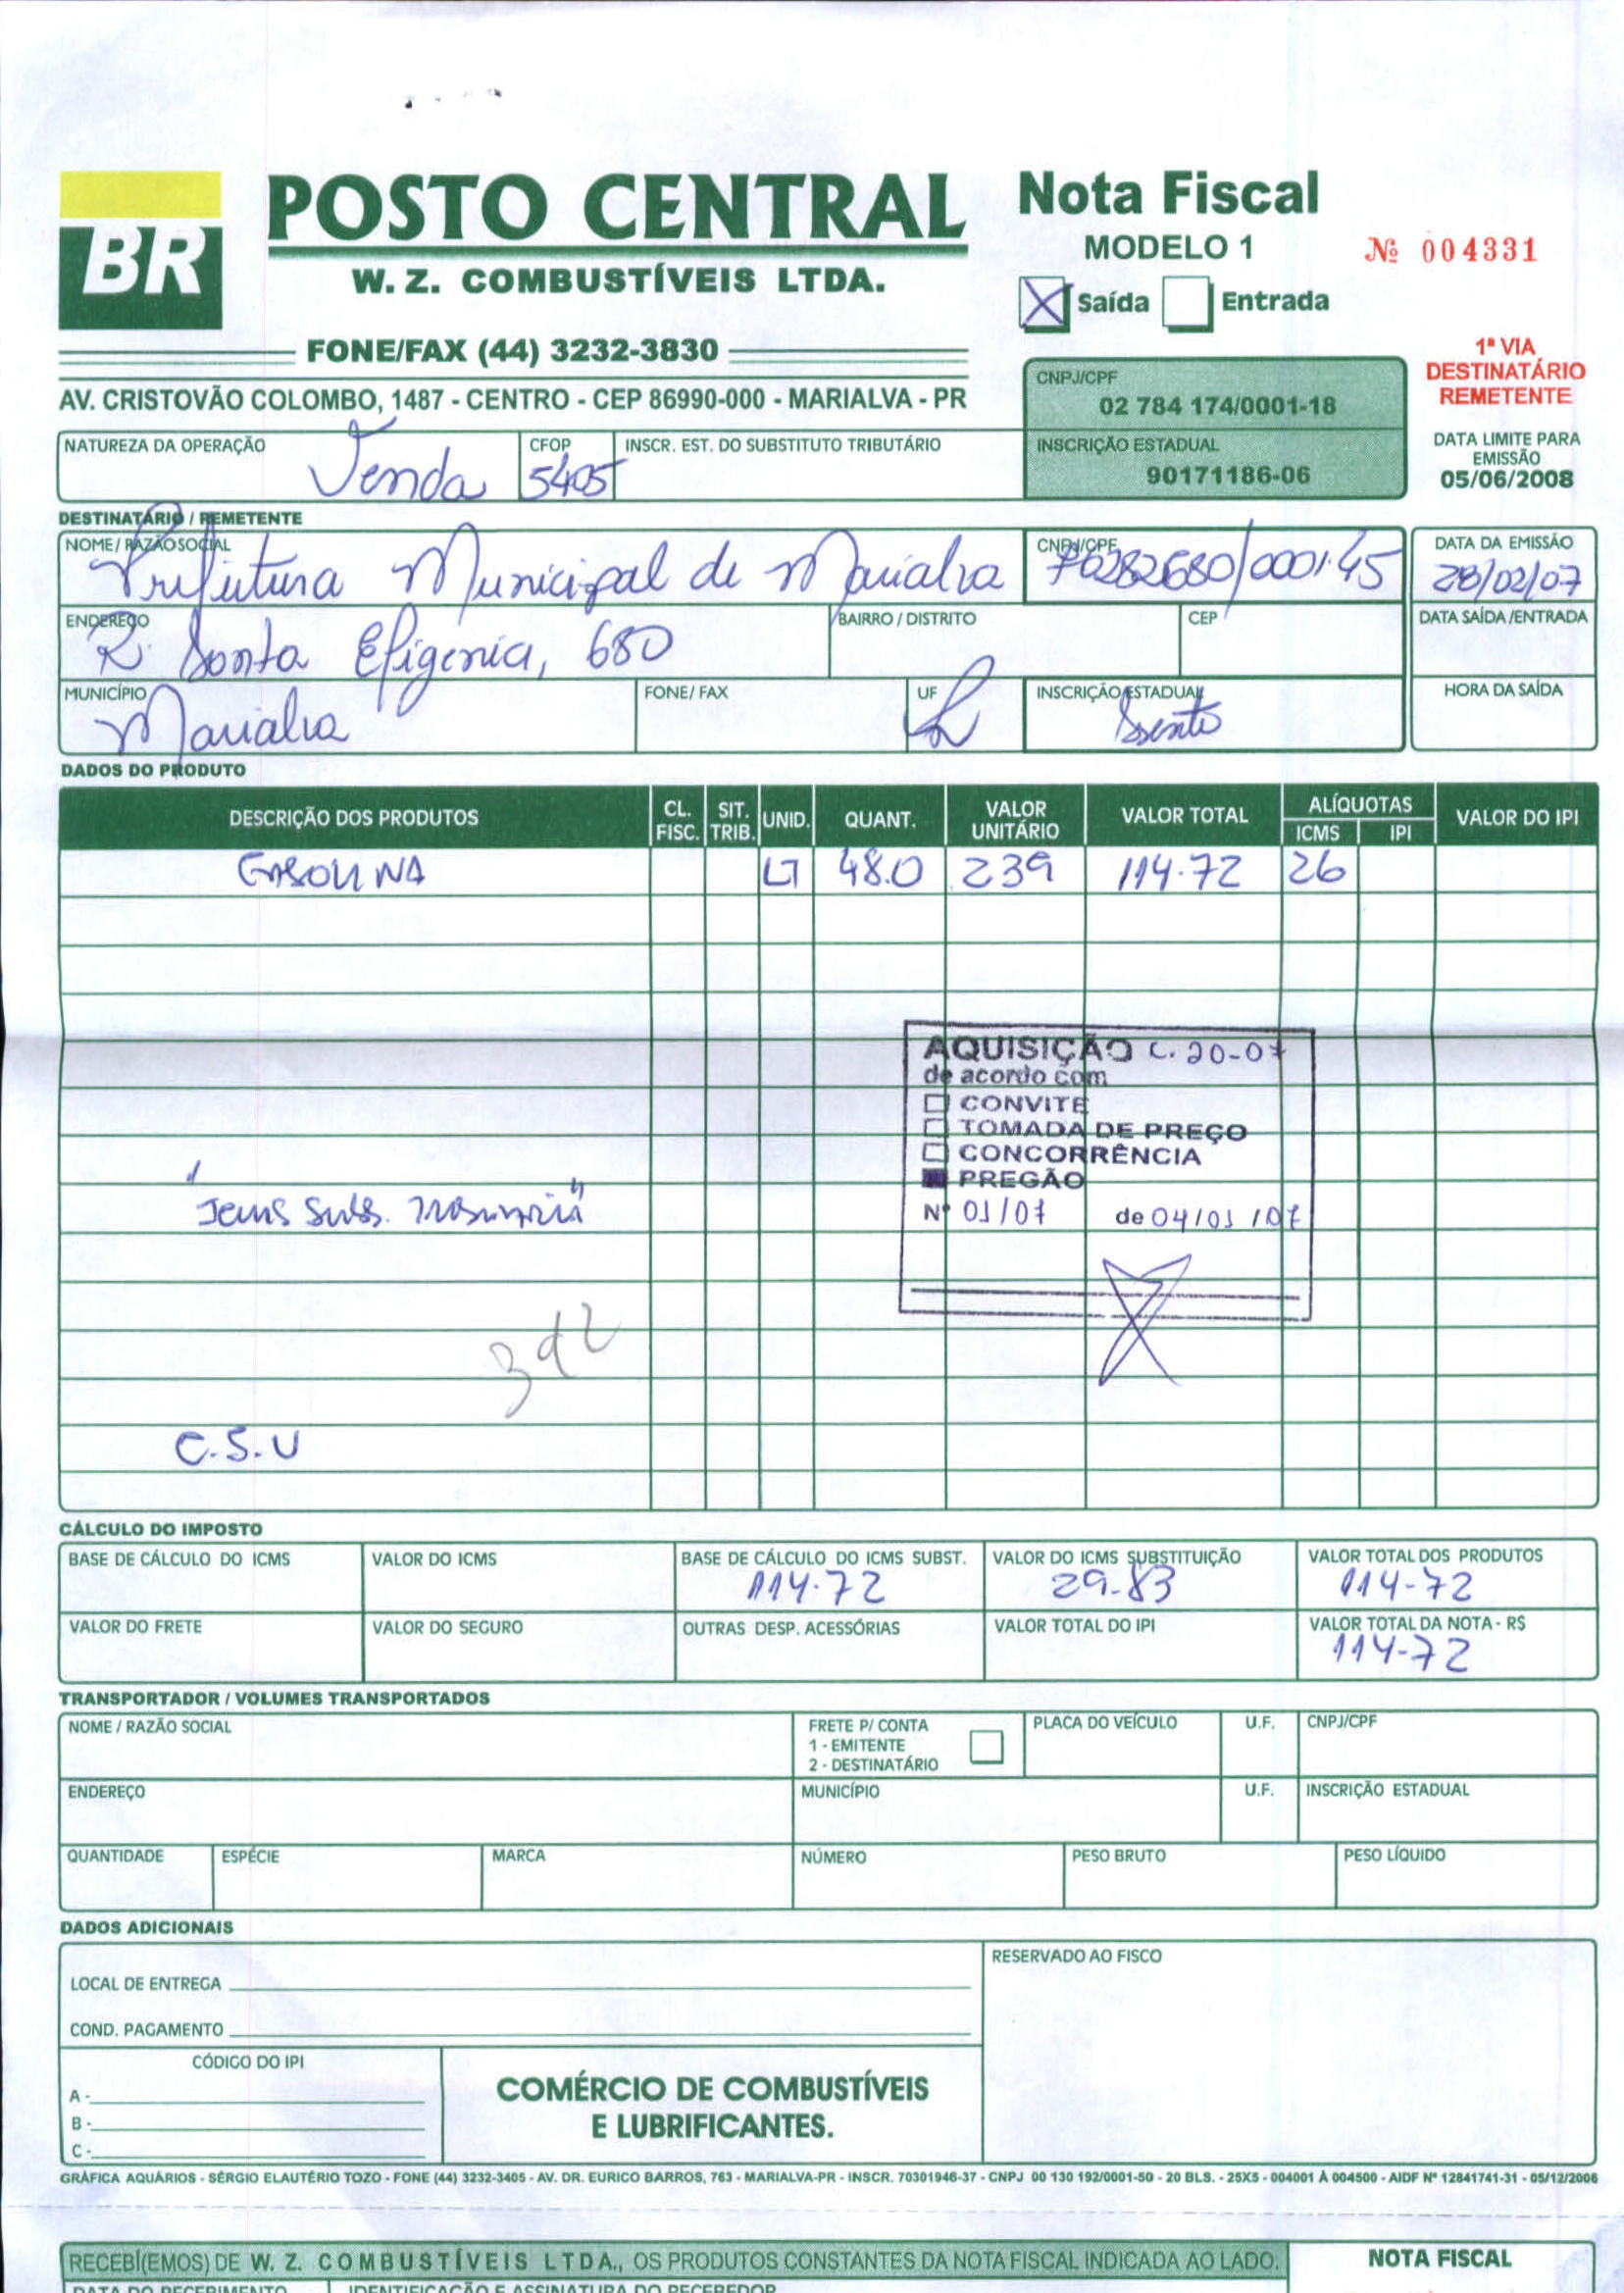 BR
POSTO CENTRAL
W. Z. COMBUSTÍVEIS LTDA.
FONE/FAX (44) 3232-3830
AV. CRISTOVÃO COLOMBO, 1487 - CENTRO - CEP 86990-000 - MARIALVA - PR
Nota Fiscal
MODELO 1
Nº 004331
X Saída Entrada
1ª VIA
DESTINATÁRIO
REMETENTE
CNPJ/CPF
02 784 174/0001-18
INSCRIÇÃO ESTADUAL
90171186-06
DATA LIMITE PARA
EMISSÃO
05/06/2008
NATUREZA DA OPERAÇÃO
Venda
CFOP
5405
INSCR. EST. DO SUBSTITUTO TRIBUTÁRIO
DESTINATÁRIO / REMETENTE
NOME / RAZÃO SOCIAL
Prefeitura Municipal de Marialva
CNPJ/CPF
76282680/0001-45
DATA DA EMISSÃO
28/02/07
ENDEREÇO
R. Santa Efigenia, 680
BAIRRO / DISTRITO
CEP
DATA SAÍDA / ENTRADA
MUNICÍPIO
Marialva
FONE / FAX
UF
INSCRIÇÃO ESTADUAL
Isento
HORA DA SAÍDA
DADOS DO PRODUTO
DESCRIÇÃO DOS PRODUTOS CL. FISC. SIT. TRIB. UNID. QUANT. VALOR UNITÁRIO VALOR TOTAL ALÍQUOTAS ICMS IPI VALOR DO IPI
GASOLINA LT 48.0 239 114.72 26
AQUISIÇÃO C. 20-07
de acordo com
CONVITE
TOMADA DE PREÇO
CONCORRÊNCIA
PREGÃO
Nº 01/07 de 04/01/07
C.S.U
CÁLCULO DO IMPOSTO
BASE DE CÁLCULO DO ICMS
VALOR DO ICMS
BASE DE CÁLCULO DO ICMS SUBST.
114.72
VALOR DO ICMS SUBSTITUIÇÃO
29-83
VALOR TOTAL DOS PRODUTOS
114-72
VALOR DO FRETE
VALOR DO SEGURO
OUTRAS DESP. ACESSÓRIAS
VALOR TOTAL DO IPI
VALOR TOTAL DA NOTA - R$
114-72
TRANSPORTADOR / VOLUMES TRANSPORTADOS
NOME / RAZÃO SOCIAL
FRETE P/ CONTA
1 - EMITENTE
2 - DESTINATÁRIO
PLACA DO VEÍCULO
U.F.
CNPJ/CPF
ENDEREÇO
MUNICÍPIO
U.F.
INSCRIÇÃO ESTADUAL
QUANTIDADE
ESPÉCIE
MARCA
NÚMERO
PESO BRUTO
PESO LÍQUIDO
DADOS ADICIONAIS
LOCAL DE ENTREGA
COND. PAGAMENTO
RESERVADO AO FISCO
CÓDIGO DO IPI
A -
B -
C -
COMÉRCIO DE COMBUSTÍVEIS
E LUBRIFICANTES.
GRÁFICA AQUÁRIOS - SÉRGIO ELAUTÉRIO TOZO - FONE (44) 3232-3405 - AV. DR. EURICO BARROS, 763 - MARIALVA-PR - INSCR. 70301946-37 - CNPJ 00 130 192/0001-50 - 20 BLS. - 25X5 - 004001 À 004500 - AIDF Nº 12841741-31 - 05/12/2006
RECEBI(EMOS) DE W. Z. COMBUSTÍVEIS LTDA., OS PRODUTOS CONSTANTES DA NOTA FISCAL INDICADA AO LADO.
NOTA FISCAL
DATA DO RECEBIMENTO
IDENTIFICAÇÃO E ASSINATURA DO RECEBEDOR